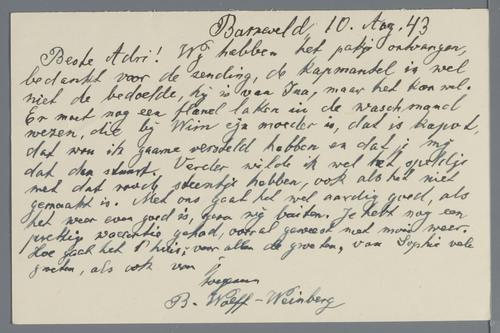 Barneveld, 10. Aug. 43
Beste Adri! Wij hebben het pakje ontvangen,
bedankt voor de zending, de kapmantel is wel
niet de bedoelde, hij is van Ina, maar het kan wel.
Er moet nog een flanel laken in de waschmand
wezen, die bij Wim zijn moeder is, dat is kapot,
dat wou ik gaarne versteld hebben en dat je mij
dat dan stuurt. Verder wilde ik wel het speldje
met dat roode steentje hebben, ook als het niet
gemaakt is. Met ons gaat het wel aardig goed, als
het weer even goed is, gaan wij buiten. Je hebt nog een
prettige vacantie gehad, vooral geweest met mooi weer.
Hoe gaat het thuis; voor allen de groeten, van Sophie vele
groeten, als ook van
B. Wolff-Weinberg